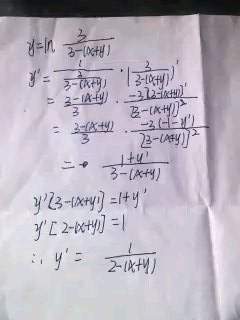 y=ln 3/(3-(x+y))
y' = 1/(3/(3-(x+y))) · (3/(3-(x+y)))'
= (3-(x+y))/3 · (-3[3-(x+y)]')/[3-(x+y)]²
= (3-(x+y))/3 · (-3(-1-y'))/[3-(x+y)]²
= (1+y')/(3-(x+y))
y'[3-(x+y)]=1+y'
y'[2-(x+y)]=1
∴ y' = 1/(2-(x+y))